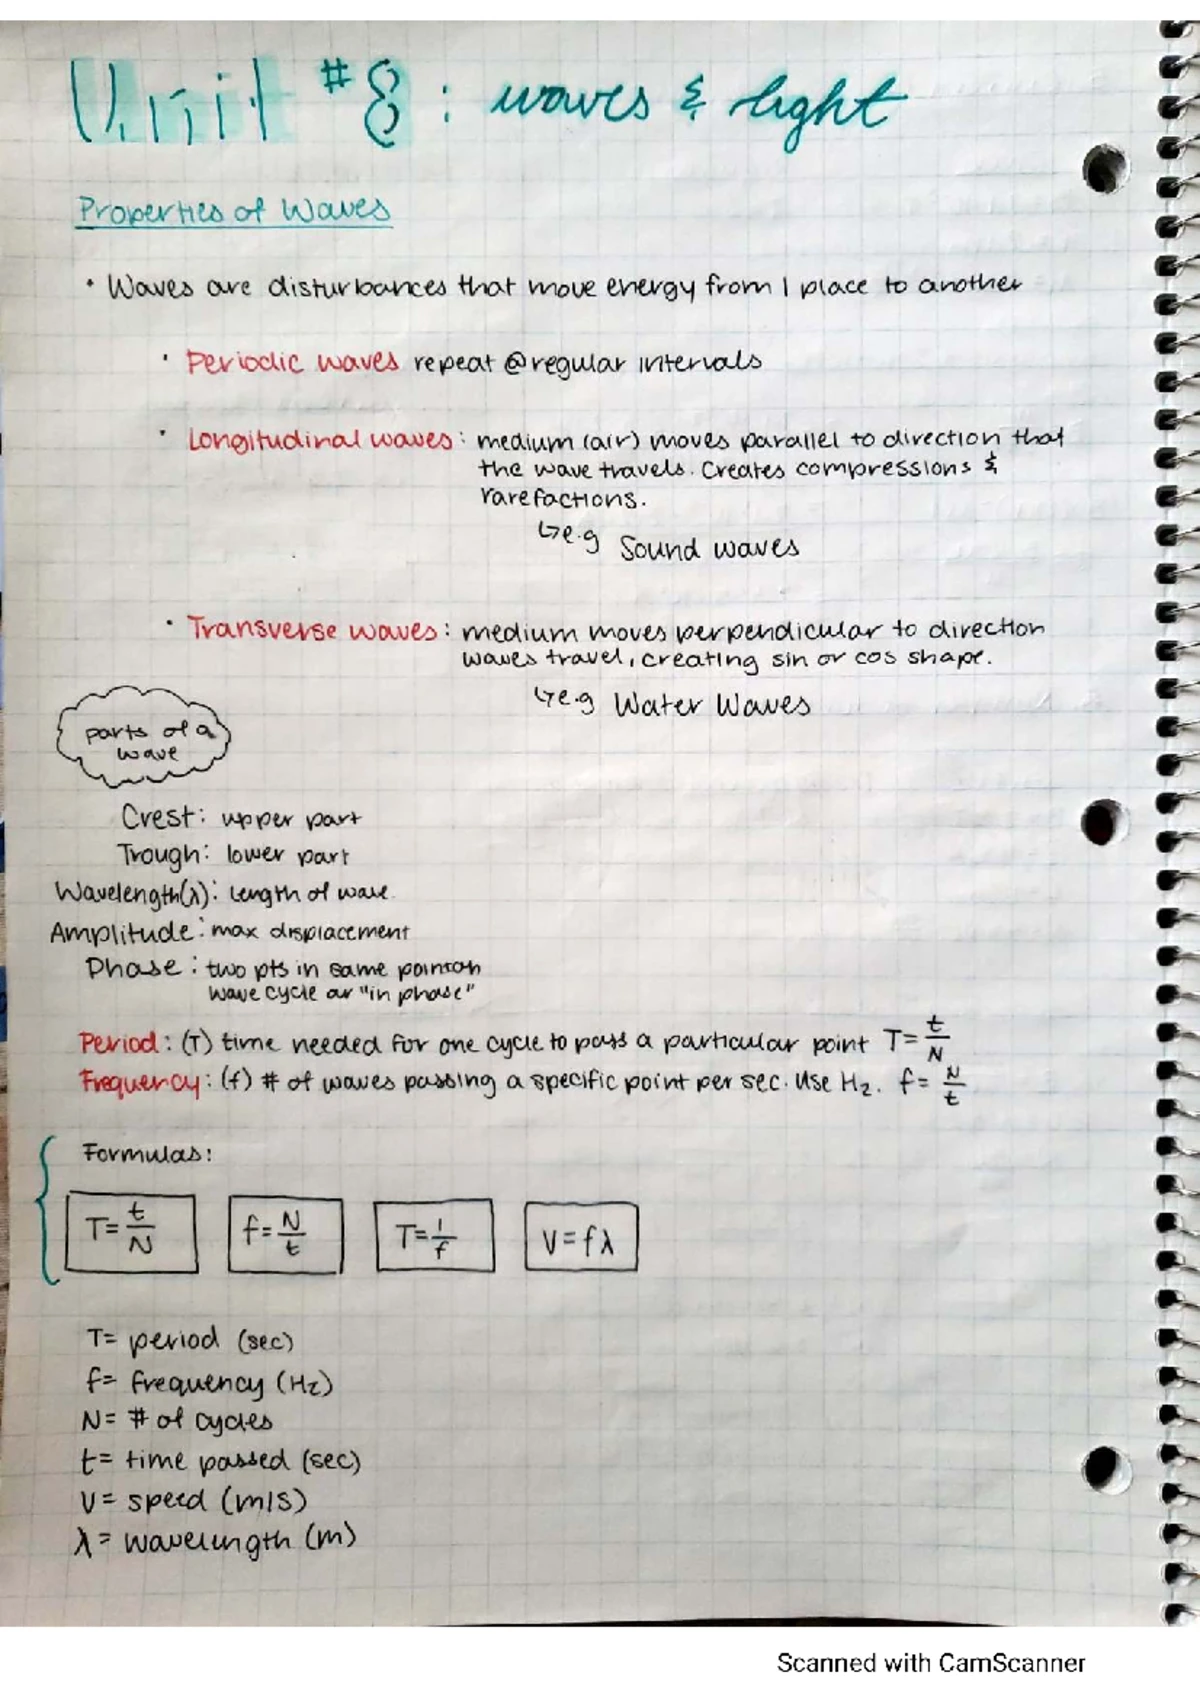 Unit #8: waves & light
Properties of Waves
• Waves are disturbances that move energy from 1 place to another
• Periodic waves repeat @ regular intervals
• Longitudinal waves: medium (air) moves parallel to direction that
the wave travels. Creates compressions &
rarefactions.
↳ e.g Sound waves
• Transverse waves: medium moves perpendicular to direction
waves travel, creating sin or cos shape.
↳ e.g Water Waves
parts of a
wave
Crest: upper part
Trough: lower part
Wavelength(λ): length of wave
Amplitude: max displacement
Phase: two pts in same point on
wave cycle ar "in phase"
Period: (T) time needed for one cycle to pass a particular point T= t/N
Frequency: (f) # of waves passing a specific point per sec. Use Hz. f= N/t
Formulas:
T= t/N f= N/t T= 1/f V=fλ
T= period (sec)
f= frequency (Hz)
N= # of cycles
t= time passed (sec)
V= speed (m/s)
λ= wavelength (m)
Scanned with CamScanner